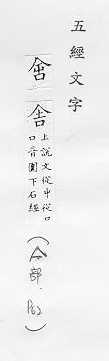 五經文字
舍
上說文從中從口
口音圍下石經
(亼部. P62)